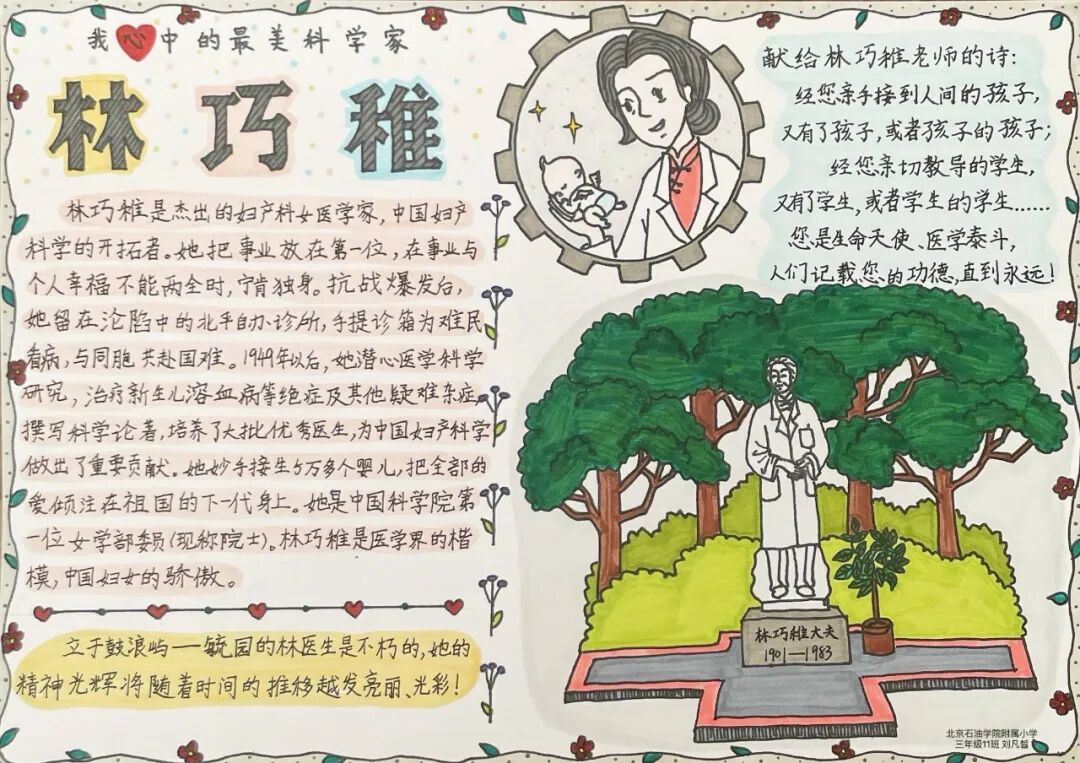 我心中的最美科学家
林巧稚
林巧稚是杰出的妇产科女医学家，中国妇产
科学的开拓者。她把事业放在第一位，在事业与
个人幸福不能两全时，宁肯独身。抗战爆发后，
她留在沦陷中的北平自办诊所，手提诊箱为难民
看病，与同胞共赴国难。1949年以后，她潜心医学科学
研究，治疗新生儿溶血病等绝症及其他疑难杂症，
撰写科学论著，培养了大批优秀医生，为中国妇产科学
做出了重要贡献。她妙手接生5万多个婴儿，把全部的
爱倾注在祖国的下一代身上。她是中国科学院第
一位女学部委员(现称院士)。林巧稚是医学界的楷
模，中国妇女的骄傲。
立于鼓浪屿——毓园的林医生是不朽的，她的
精神光辉将随着时间的推移越发亮丽、光彩！
献给林巧稚老师的诗：
经您亲手接到人间的孩子，
又有了孩子，或者孩子的孩子；
经您亲切教导的学生，
又有了学生，或者学生的学生……
您是生命天使、医学泰斗，
人们记载您的功德，直到永远！
林巧稚大夫
1901—1983
北京石油学院附属小学
三年级11班 刘凡哲